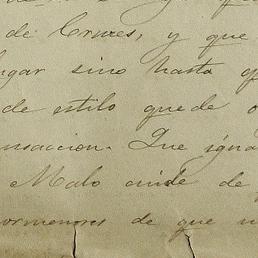 de Cruces, y que
lugar sino hasta q
de estilo quede o
ansaccion. Que igua
Malo cuide de
ormenores de que